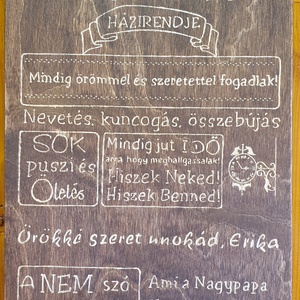 HÁZIRENDJE
Mindig örömmel és szeretettel fogadlak!
Nevetés, kuncogás, összebújás
SOK
puszi és
Ölelés
Mindig jut IDŐ
arra hogy meghallgassalak!
Hiszek Neked!
Hiszek Benned!
Örökké szeret unokád, Erika
A NEM szó
Ami a Nagypapa